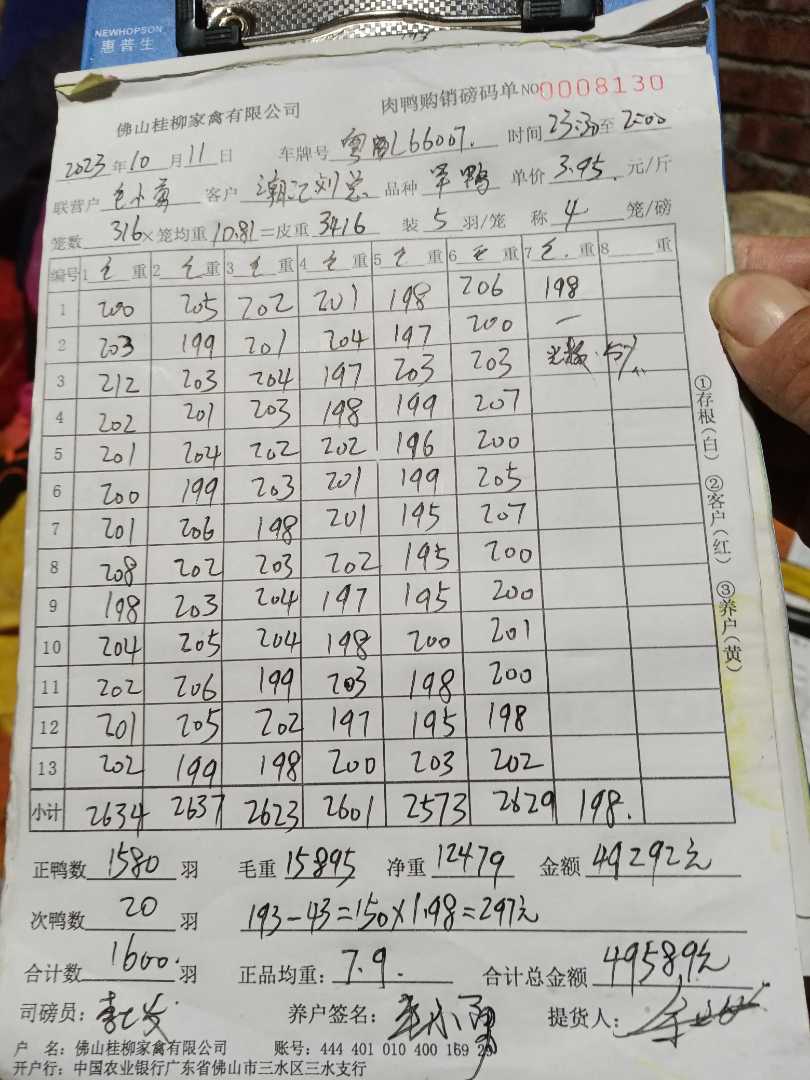 NEWHOPSON
惠普生
佛山桂柳家禽有限公司 肉鸭购销磅码单 NO 0008130
2023年10月11日 车牌号 粤 L66007. 时间 23:30至2:00
联营户 客户 潮汇刘总 品种 单价 3.95 元/斤
笼数 316×笼均重 10.81=皮重 3416 装 5 羽/笼 称 4 笼/磅
编号 1 毛 重 2 毛 重 3 毛 重 4 毛 重 5 毛 重 6 毛 重 7 毛 重 8 重
1 200 205 202 201 198 206 198
2 203 199 201 204 197 200 一
3 212 203 204 197 203 203
4 202 201 203 198 199 207
5 201 204 202 202 196 200
6 200 199 203 201 199 205
7 201 206 198 201 195 207
8 208 202 203 202 195 200
9 198 203 204 197 195 200
10 204 205 204 198 200 201
11 202 206 199 203 198 200
12 201 205 202 197 195 198
13 202 199 198 200 203 202
小计 2634 2637 2623 2601 2573 2629 198.
正鸭数 1580 羽 毛重 15895 净重 12479 金额 49292元
次鸭数 20 羽 193-43=150×1.98=297元
合计数 1600. 羽 正品均重: 7.9. 合计总金额 49589元
司磅员: 养户签名: 提货人:
户 名: 佛山桂柳家禽有限公司 账号: 444 401 010 400 169
开户行: 中国农业银行广东省佛山市三水区三水支行
①存根(白) ②客户(红) ③养户(黄)